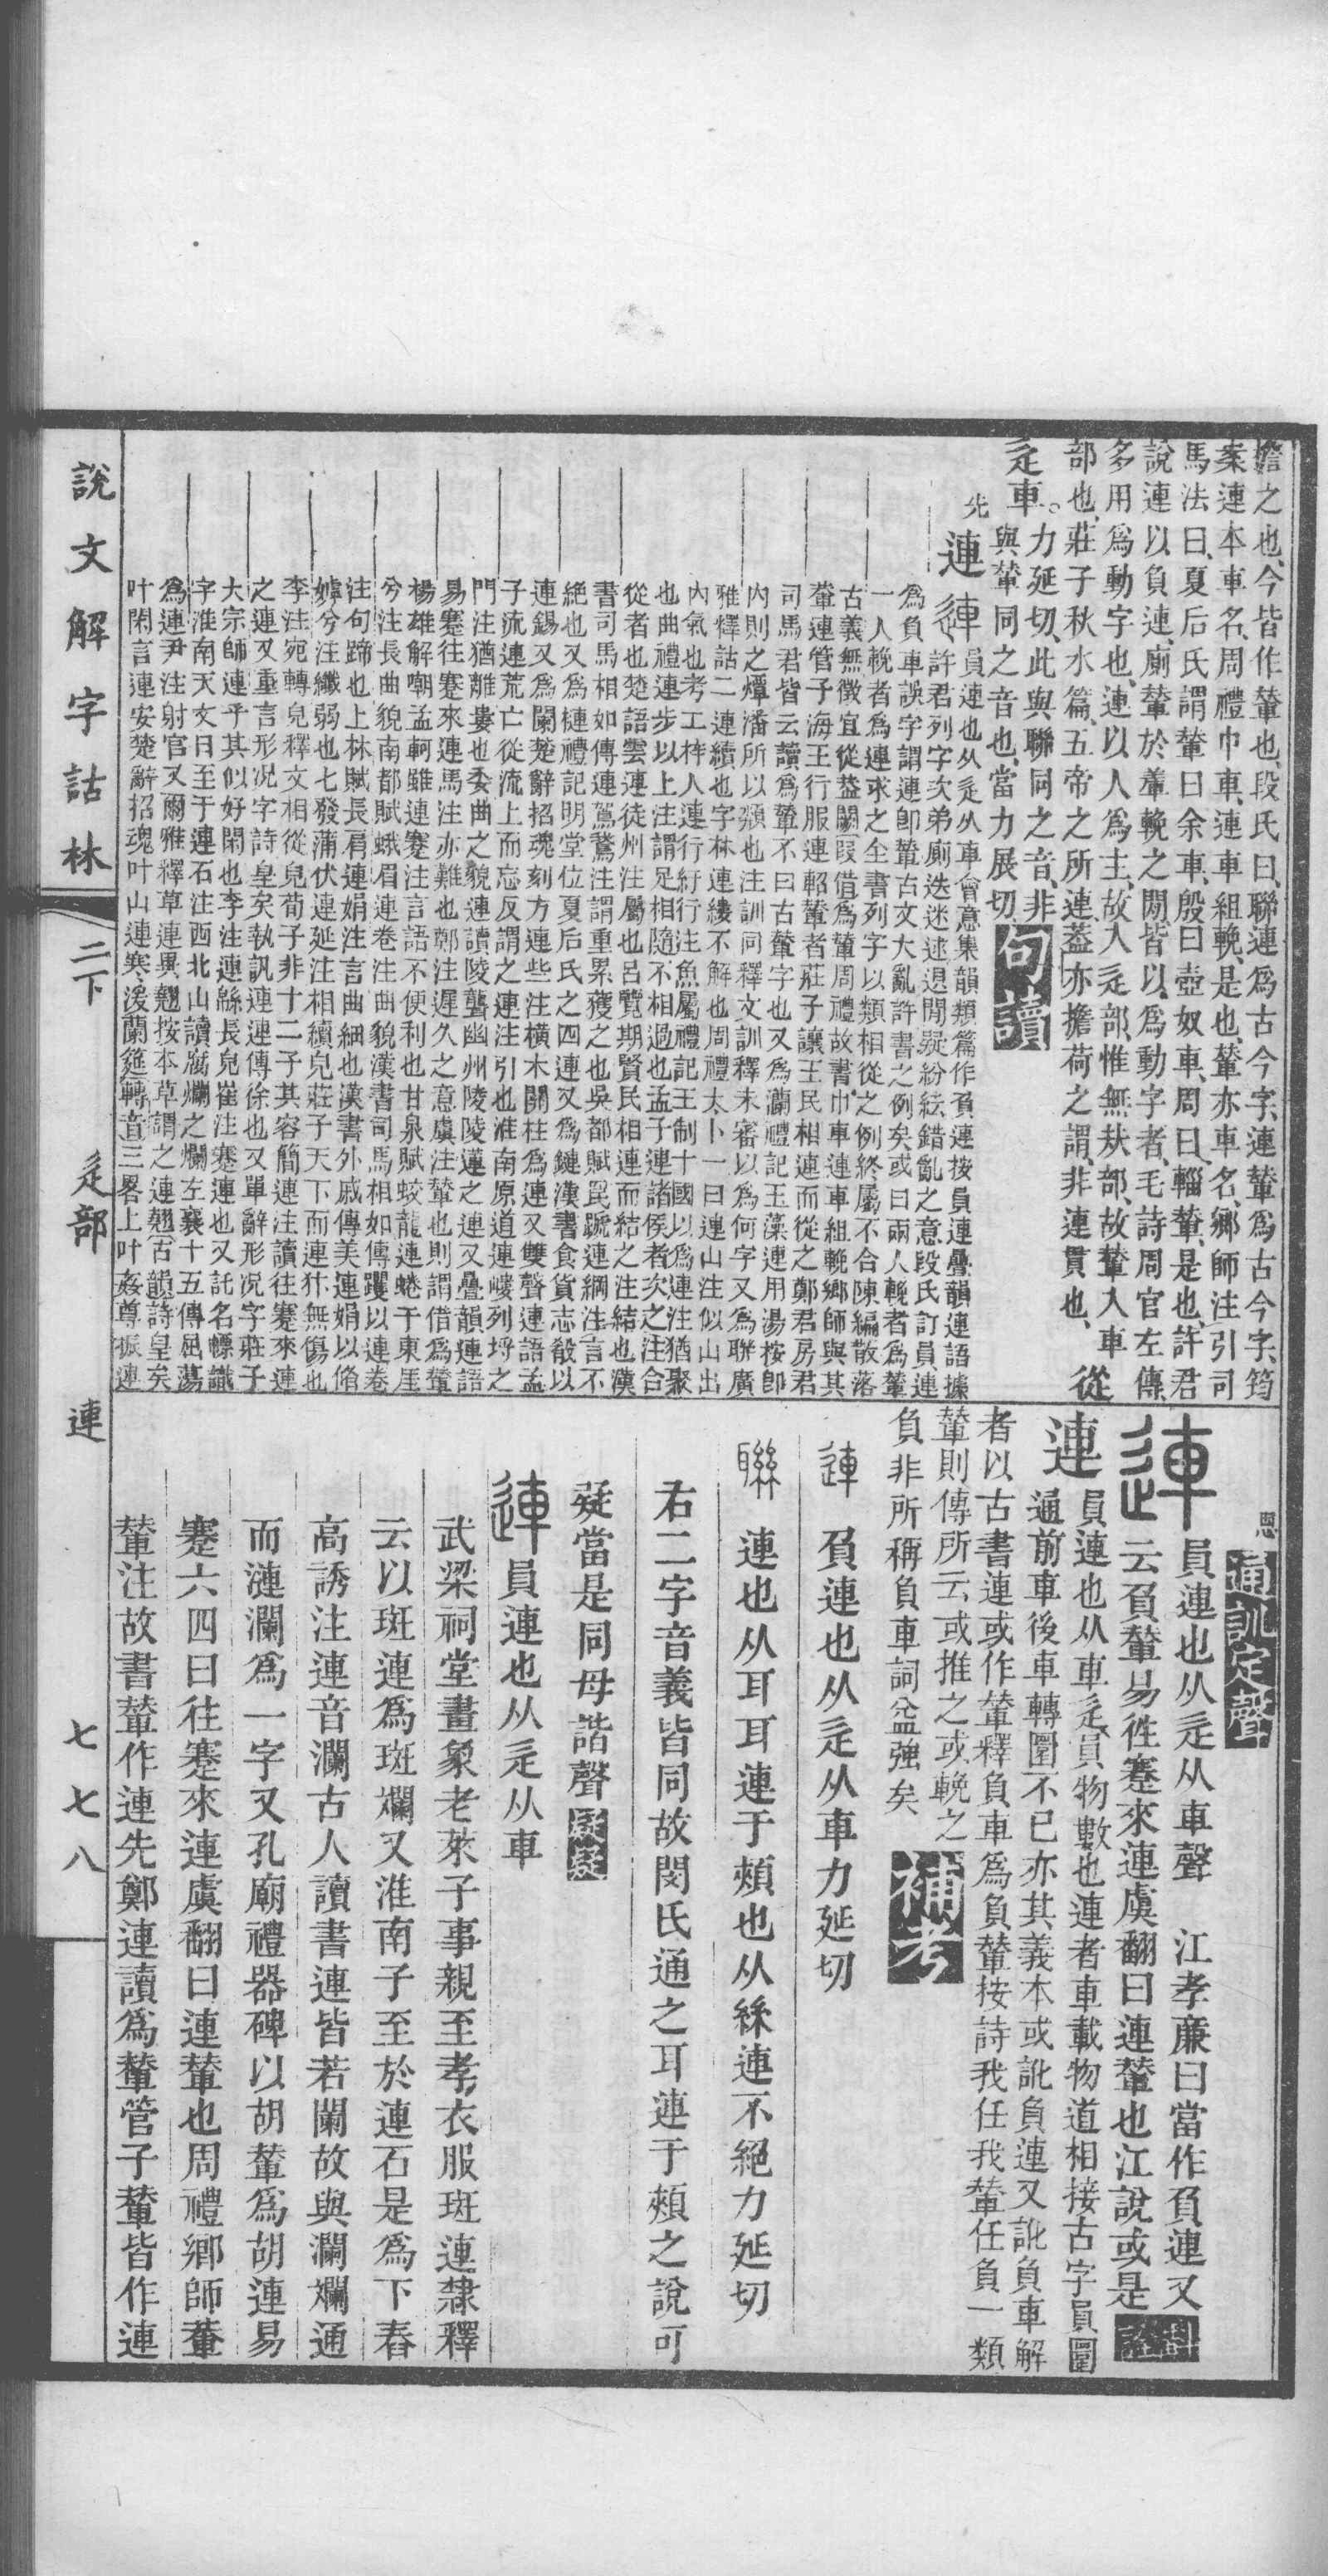 擔之也、今皆作輦也、段氏曰、聯連爲古今字、連輦爲古今字、筠
案連本車名、周禮巾車、連車組輓、是也、輦亦車名、鄉師注引司
馬法曰、夏后氏謂輦曰余車、殷曰壺奴車、周曰輜輦、是也、許君
說連以負連、廟輦於輦輓之閒、皆以爲動字者、毛詩周官左傳
多用爲動字也、連以人爲主、故入辵部、惟無㚘部、故輦入車
部也、莊子秋水篇、五帝之所連、葢亦擔荷之謂、非連貫也、從
辵車。力延切、此與聯同之音、非
與輦同之音也、當力展切、句讀
先
連 員連也从辵从車會意集韻類篇作負連按員連疊韻連語據
許君列字次弟廟迭迷逑退閒疑紛紜錯亂之意段氏訂員連
爲負車誤字謂連卽輦古文大亂許書之例矣或曰兩人輓者爲輦
一人輓者爲連求之全書列字以類相從之例終屬不合陳編散落
古義無徵宜從葢闕叚借爲輦周禮故書巾車連車組輓鄉師與其
輂連管子海王行服連軺輂者莊子讓王民相連而從之鄭君房君
司馬君皆云讀爲輦不曰古輦字也又爲灡禮記玉藻連用湯按卽
內則之燂潘所以靧也注訓同釋文訓釋未審以爲何字又爲聯廣
雅釋詁二連續也字林連縷不解也周禮太卜一曰連山注似山出
內氣也考工梓人連行紆行注魚屬禮記王制十國以爲連注猶聚
也曲禮連步以上注謂足相隨不相過也孟子連諸侯者次之注合
從者也楚語雲連徒州注屬也呂覽期賢民相連而結之注結也漢
書司馬相如傳連駕鵞注謂重累獲之也吳都賦罠蹏連綱注言不
絕也又爲槤禮記明堂位夏后氏之四連又爲鏈漢書食貨志殽以
連錫又爲闌楚辭招魂刻方連些注橫木關柱爲連又雙聲連語孟
子流連荒亡從流上而忘反謂之連注引也淮南原道連嶁列埒之
門注猶離婁也委曲之貌連讀陵聾幽州陵陵蓮之連又疊韻連語
易蹇往蹇來連馬注亦難也鄭注遲久之意虞注輦也則謂借爲輦
楊雄解嘲孟軻雖連蹇注言語不便利也甘泉賦蛟龍連蜷于東厓
兮注長曲貌南都賦蛾眉連卷注曲貌漢書司馬相如傳躩以連卷
注句蹄也上林賦長眉連娟注言曲細也漢書外戚傳美連娟以脩
嫭兮注纖弱也七發蒲伏連延注相續皃莊子天下而連犿無傷也
李注宛轉皃釋文相從皃荀子非十二子其容簡連注讀往蹇來連
之連又重言形況字詩皇矣執訊連連傳徐也又單辭形況字莊子
大宗師連乎其似好閑也李注連緜長皃崔注蹇連也又託名幖識
字淮南天文日至于連石注西北山讀腐爛之爛左襄十五傳屈蕩
爲連尹注射官又爾雅釋草連異翹按本草謂之連翹古韻詩皇矣
叶閑言連安楚辭招魂叶山連寒湲蘭筵轉音三畧上叶姦尊振連
恩
通訓定聲
連 員連也从辵从車聲 江孝廉曰當作負連又
云負輦易徃蹇來連虞翻曰連輦也江說或是 斠詮
連 員連也从車辵、員物數也連者車載物道相接古字員圍
通前車後車轉圍不已亦其義本或訛負連又訛負車解
者以古書連或作輦釋負車爲負輦按詩我任我輦任負一類
輦則傳所云或推之或輓之
負非所稱負車詞益強矣 補考
連 負連也从辵从車力延切
聯 連也从耳耳連于頰也从絲連不絕力延切
右二字音義皆同故閔氏通之耳連于頰之說可
疑當是同母諧聲 疑疑
連 員連也从辵从車
武梁祠堂畫象老萊子事親至孝衣服斑連隸釋
云以斑連爲斑斕又淮南子至於連石是爲下舂
高誘注連音瀾古人讀書連皆若闌故與瀾斕通
而漣瀾爲一字又孔廟禮器碑以胡輦爲胡連易
蹇六四曰往蹇來連虞翻曰連輦也周禮鄉師輂
輦注故書輦作連先鄭連讀爲輦管子輦皆作連
說文解字詁林 二下 辵部 連 七七八